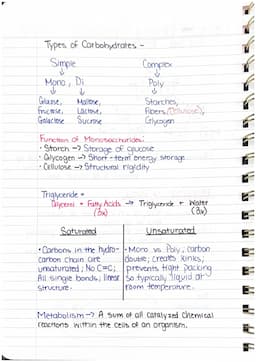 Types of Carbohydrates -
Simple Complex
Mono, Di Poly
Glucose, Maltose, Starches,
Fructose, Lactose, Fibers (Cellulose),
Galactose Sucrose Glycogen
Function of Monosaccharides:
· Starch -> Storage of glucose
· Glycogen -> Short-term energy storage
· Cellulose -> Structural rigidity
Triglyceride =
Glycerol + Fatty Acids -> Triglyceride + Water
(3x) (3x)
Saturated Unsaturated
· Carbons in the hydro- · Mono vs Poly, carbon
carbon chain are double; creates kinks;
unsaturated; No C=C; prevents tight packing
All single bonds; linear so typically liquid at
structure. room temperature.
Metabolism -> A sum of all catalyzed chemical
reactions within the cells of an organism.